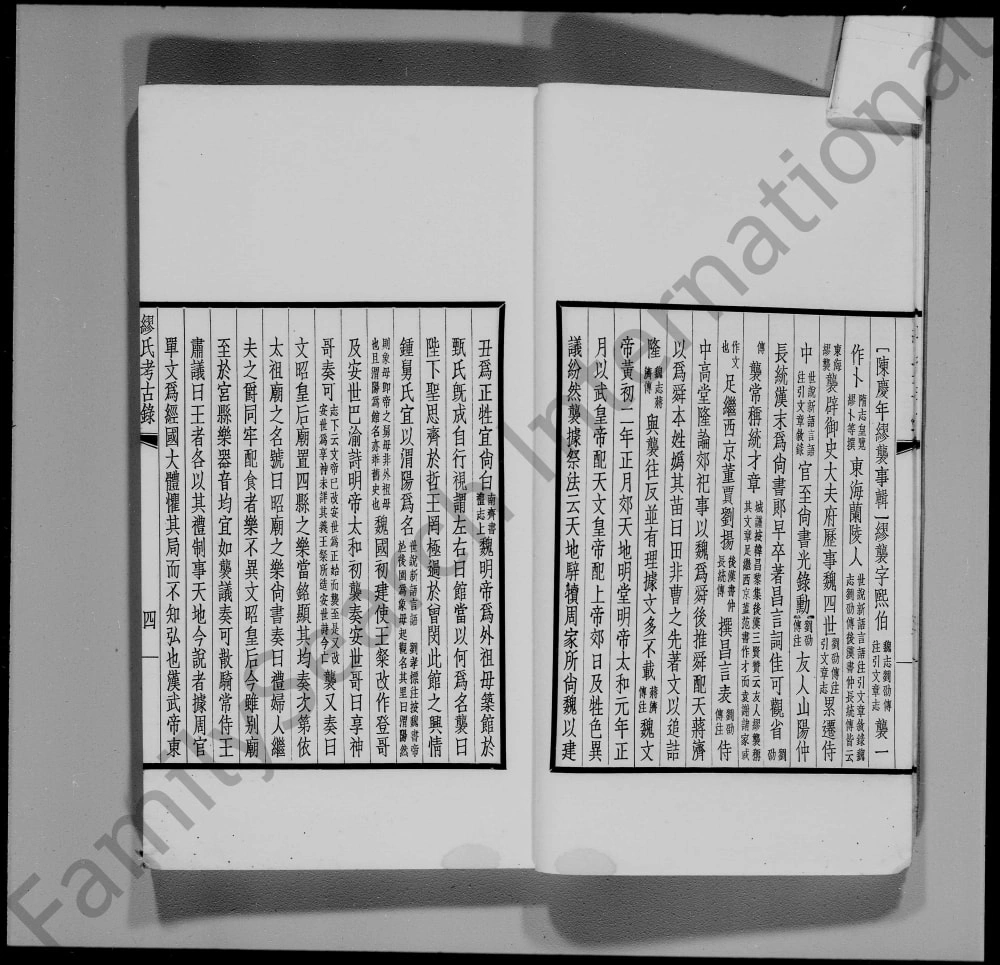 [陳慶年繆襲事輯]繆襲字熙伯魏志劉劭傳注引文章志襲一
作卜隋志皇覽繆卜等撰東海蘭陵人世說新語言語注引文章敘錄魏志劉劭傳後漢書仲長統傳皆云
東海繆襲襲辟御史大夫府歷事魏四世劉劭傳注引文章志累遷侍
中世說新語言語注引文章敘錄官至尚書光錄勳劉劭傳注友人山陽仲
長統漢末爲尚書郞早卒著昌言詞佳可觀省劉劭
傳襲常稱統才章
其文章足繼西京
作文也足繼西京董賈劉揚後漢書仲長統傳撰昌言表劉劭傳注侍
中高堂隆論郊祀事以魏爲舜後推舜配天蔣濟
以爲舜本姓嬀其苗曰田非曹之先著文以追詰
隆魏志蔣濟傳與襲往反並有理據文多不載蔣濟傳注魏文
帝黃初二年正月郊天地明堂明帝太和元年正
月以武皇帝配天文皇帝配上帝郊日及牲色異
議紛然襲據祭法云天地騂犢周家所尚魏以建
丑爲正牲宜尚白南齊書禮志上魏明帝爲外祖母築館於
甄氏旣成自行視謂左右曰館當以何爲名襲曰
陛下聖思齊於哲王罔極過於曾閔此館之興情
鍾舅氏宜以渭陽爲名世說新語言語 劉孝標注按魏書帝於後園爲象母起觀名其里曰渭陽然
則象母卽帝之舅母非外祖母也且渭陽爲館名亦乖舊史也魏國初建使王粲改作登哥
及安世巴渝詩明帝太和初襲奏安世哥曰享神
哥奏可志下云文帝已改安世爲正始而襲至是又改安世爲享神未詳其義王粲所造安世詩今亡襲又奏曰
文昭皇后廟置四縣之樂當銘顯其均奏次第依
太祖廟之名號曰昭廟之樂尚書奏曰禮婦人繼
夫之爵同牢配食者樂不異文昭皇后今雖別廟
至於宮縣樂器音均宜如襲議奏可散騎常侍王
肅議曰王者各以其禮制事天地今說者據周官
單文爲經國大體懼其局而不知弘也漢武帝東
繆氏考古錄
四
FamilySearch International